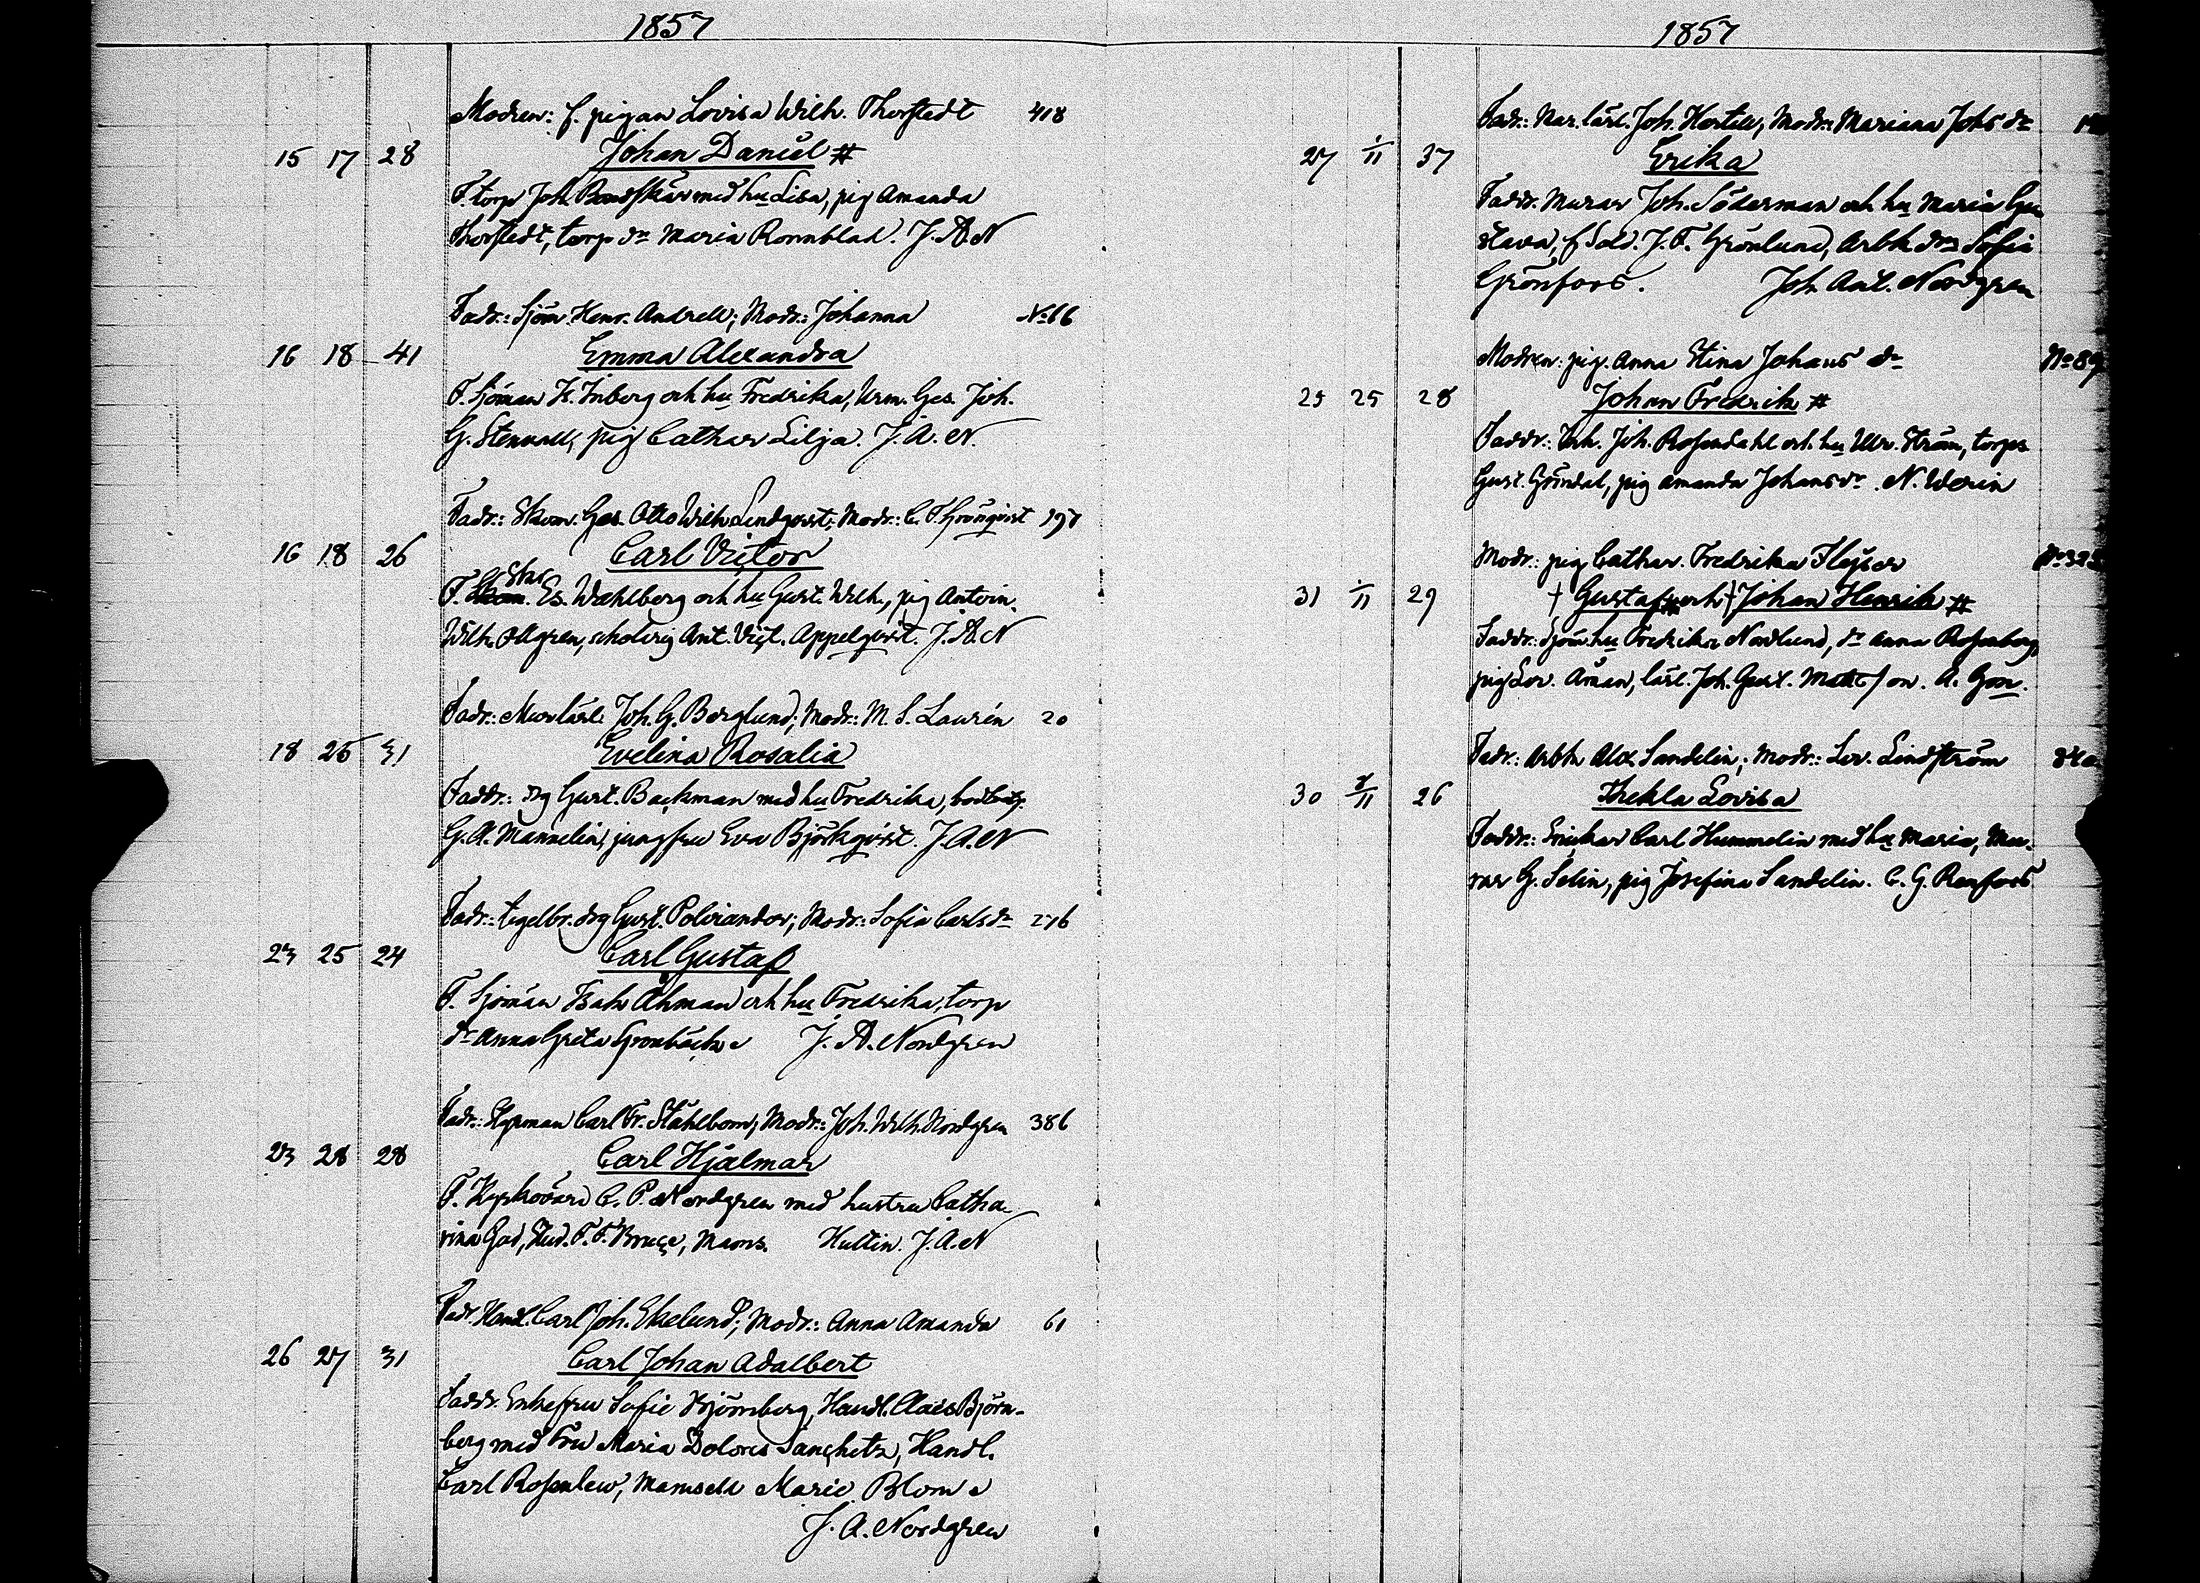 1857
Modren: f. pigan Lovisa Wilh. Thorstedt 418
15 17 28 Johan Daniel #
F. torp Joh. Bandskär med hu Lisa, pig Amanda
Thorstedt, torp dr Maria Rönnblad. J. A. N
Fadr.: Sjöm. Henr. Andrell; Modr.: Johanna No 66
16 18 41 Emma Alexandra
F. Sjöman K. Inberg och hu Fredrika, Urm. Ges. Joh.
G. Stenvall, pig Cathar Lilja. J. A. N.
Fadr.: Skom. Ges. Otto Wilh Lindqvist; Modr.: C. F. Grönqvist 197
16 18 26 Carl Victor
F. Skr Es. Wahlberg och hu Gust. Wilh., pig Antoin.
Wilh. Allgren, Ant. Vict. Appelqvist. J. A. N
Fadr.: Murlärl. Joh. G. Berglund; Modr.: M. S. Laurén 20
18 25 31 Evelina Rosalia
Faddr.: drg Gust. Backman med hu Fredrika,
G. A. Mannelin, jungfru Eva Björkqvist. J. A. N
Fadr.: tegelbr. drg Gust. Polviander; Modr.: Sofia Carlsdr 276
23 25 24 Carl Gustaf
F. Sjöman Isak Åhman och hu Fredrika, torp
dr Anna Greta Grönbäck. J. A. Nordgren
Fadr.: Styrman Carl Fr. Ståhlbom; Modr.: Joh. Wilh. Nordgren 386
23 28 28 Carl Hjalmar
F. Kyrkovärd C. P. Nordgren med hustru Catha-
rina Gad, Stud. F. F. Bruce, Mams. Hultin. J. A. N
Fadr. Handl. Carl Joh. Ekelund; Modr.: Anna Amanda 61
26 27 31 Carl Johan Adalbert
Faddr. Enkefru Sofie Björnberg, Handl. Claes Björn-
berg med Fru Maria Dolores Sanchetz, Handl.
Carl Rosenlew, Mamsell Marie Blom
J. A. Nordgren
1857
Fadr.: Mur. lärl. Joh. Hertell; Modr.: Mariana Johs dr
27 1/11 37 Erika
Faddr. Murar Joh. Söderman och hu Maria Gu
stava, f Sold. J. F. Grönlund, Arbk. dr Sofia
Grönfors. Joh. Ant. Nordgren
Modren: pig. Anna Stina Johans dr No 89
25 25 28 Johan Fredrik #
Faddr.: Joh. Rosendahl och hu Ulr. Ström, torps
Gust. Gröndal, pig Amanda Johansdr. N. Werin
Modr.: pig Cathar. Fredrika Flejser No 325
31 1/11 29 † Gustaf # och † Johan Henrik #
Faddr.: Sjöm. hu Fredrika Nordlund, dr Anna Rosenberg,
pig Lov. Åman, lärl. Joh. Gust. Matsson. A. Gm.
Fadr.: Arbk Alex Sandelin; Modr.: Lov. Lindström 340
30 8/11 26 Thekla Lovisa
Faddr.: Snickar Carl Hummelin med hu Maria, Mu-
rar G. Selin, pig Josefina Sandelin. C. G. Renfors